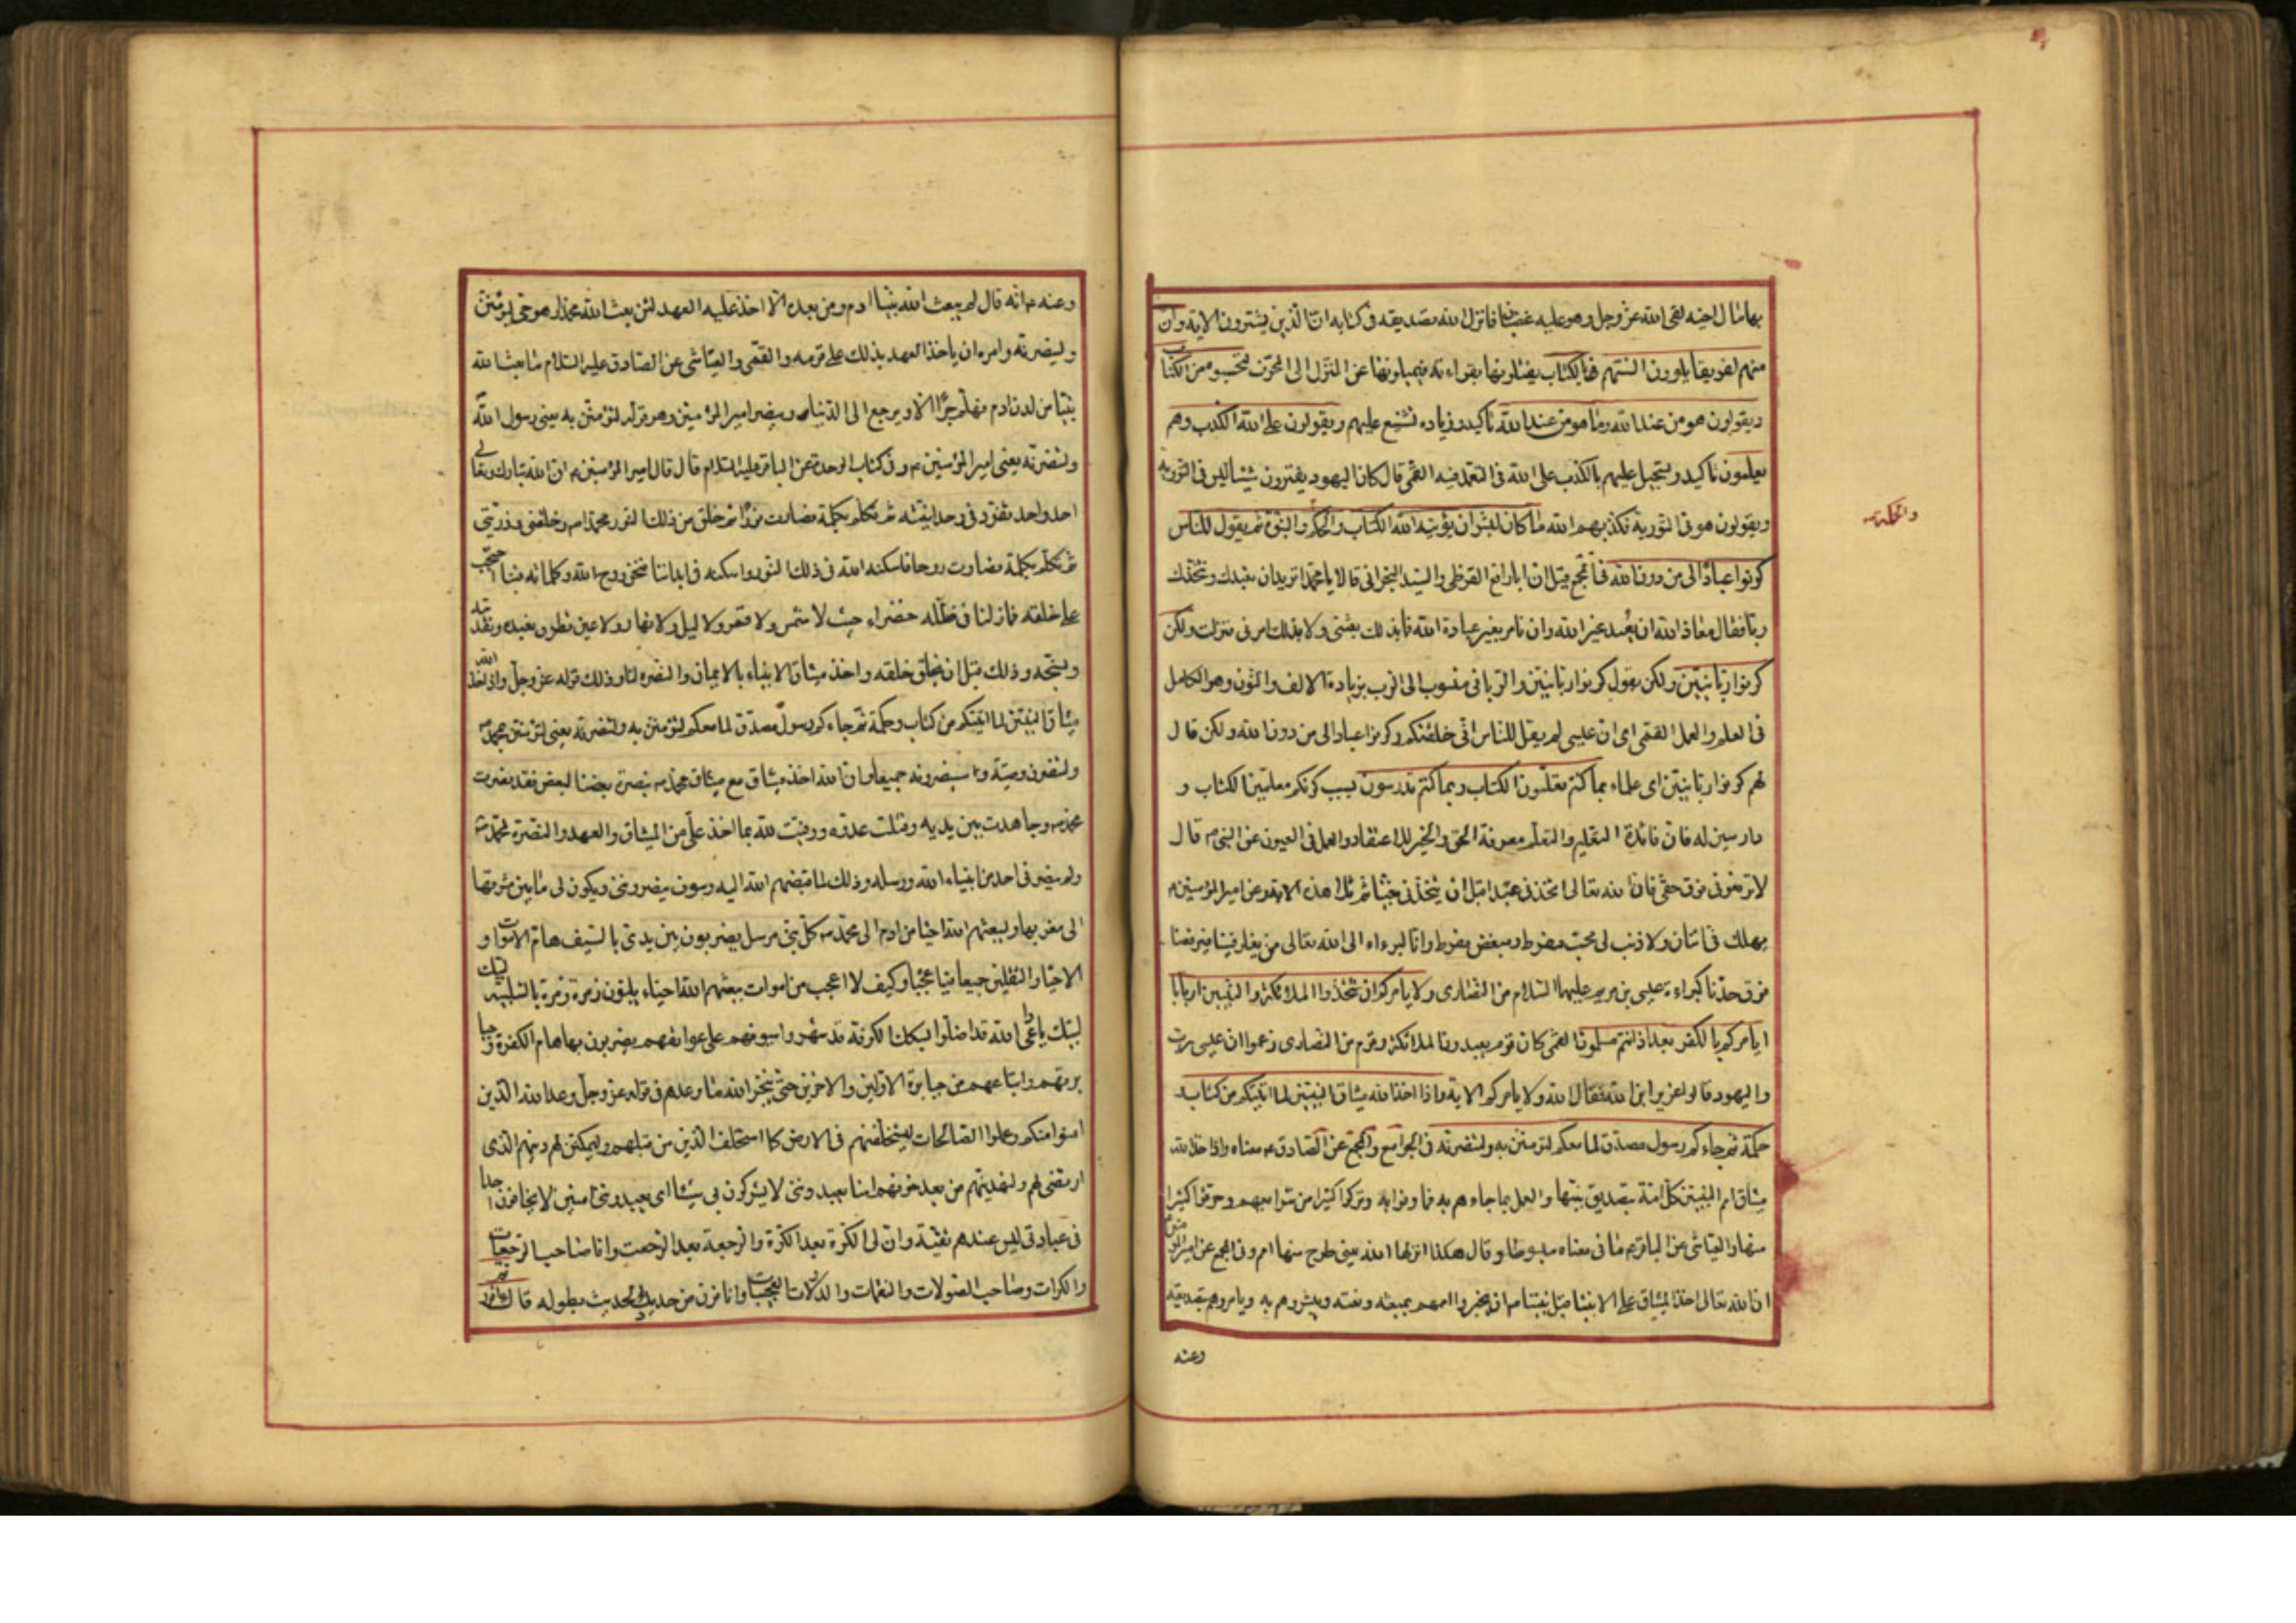 بها مال اخيه لقى الله عز وجل وهو عليه غضبان فانزل الله تصديقه في كتابه ان الذين يشترون الاية وان
منهم لفريقا يلوون السنتهم بالكتاب يفتلونها بقراءته فيميلونها عن المنزل الى المحرّف لتحسبوه من الكتاب
ويقولون هو من عند الله وما هو من عند الله تاكيد وزيادة تشنيع عليهم ويقولون على الله الكذب وهم
يعلمون تاكيد وتسجيل عليهم بالكذب على الله والتعمد فيه القمى قال كان اليهود يفترون شيئا ليس في التورية
ويقولون هو في التورية فكذبهم الله ما كان لبشر ان يؤتيه الله الكتاب والحكم والنبوة ثم يقول للناس
والحكمة
كونوا عبادا لى من دون الله في المجمع قيل ان ابا رافع القرظى والسيد النجرانى قالا يا محمد اتريدان نعبدك ونتخذك
ربا فقال معاذ الله ان يعبد غير الله وان نامر بغير عبادة الله فما بذلك بعثنى ولا بذلك امرنى فنزلت ولكن
كونوا ربانيين ولكن يقول كونوا ربانيين والربانى منسوب الى الرب بزيادة الالف والنون وهو الكامل
في العلم والعمل القمى اى ان عيسى لم يقل للناس انى خلقتكم وكونوا عبادا لى من دون الله ولكن قال
لهم كونوا ربانيين اى علماء بما كنتم تعلمون الكتاب وبما كنتم تدرسون بسبب كونكم معلمين الكتاب و
دارسين له فان فائدة التعليم والتعلم معرفة الحق والخير للاعتقاد والعمل في العيون عن النبى ص قال
لا ترفعونى فوق حقى فان الله تعالى اتخذنى عبدا قبل ان يتخذنى نبيا ثم تلا هذه الاية وعن امير المؤمنين ع
يهلك فى اثنان ولا ذنب لى محب مفرط ومبغض مفرط وانا لبرءاء الى الله تعالى من يغلو فينا فيرفعنا
فوق حدنا كبراءة عيسى بن مريم عليهما السلام من النصارى ولا يامركم ان تتخذوا الملائكة والنبيين اربابا
ايامركم بالكفر بعد اذ انتم مسلمون القمى كان قوم يعبدون الملائكة وقوم من النصارى زعموا ان عيسى رب
واليهود قالوا عزير ابن الله فقال الله ولا يامركم الاية واذا اخذ الله ميثاق النبيين لما اتيتكم من كتاب و
حكمة ثم جاءكم رسول مصدق لما معكم لتؤمنن به ولتنصرنه في الجوامع والمجمع عن الصادق ع معناه واذ اخذ الله
ميثاق امم النبيين كل امة بتصديق نبيها والعمل بما جاءهم به فما وفوا به وتركوا كثيرا من شرايعهم وحرفوا كثيرا
منها والعياشى عن الباقر ع ما في معناه مبسوطا وقال هكذا انزلها الله يعنى طرح منها امم وفي المجمع عن امير المؤمنين
ان الله تعالى اخذ الميثاق على الانبيا قبل نبينا ص ان يخبروا اممهم بمبعثه ونعته ويبشروهم به ويامروهم بتصديقه
وعنه
وعنه ع انه قال لم يبعث الله نبيا ادم ومن بعده الا اخذ عليه العهد لئن بعث الله محمدا ص وهو حى ليؤمنن
ولينصرنه وامره ان ياخذ العهد بذلك على قومه والقمى والعياشى عن الصادق عليه السلام ما بعث الله
نبيا من لدن ادم فهلم جرا الا ويرجع الى الدنيا وينصر امير المؤمنين وهو قوله لتؤمنن به يعنى رسول الله
ولتنصرنه يعنى امير المؤمنين ع وفي كتاب الوحدة عن الباقر عليه السلام قال قال امير المؤمنين ع ان الله تبارك وتعالى
احد واحد تفرد في وحدانيته ثم تكلم بكلمة فصارت نورا ثم خلق من ذلك النور محمدا ص وخلقنى وذريتى
ثم تكلم بكلمة فصارت روحا فاسكنه الله في ذلك النور واسكنه في ابداننا فنحن روح الله وكلماته فبنا احتجب
على خلقه فما زلنا في ظلة خضراء حيث لا شمس ولا قمر ولا ليل ولا نهار ولا عين تطرف نعبده ونقدسه
ونسبحه وذلك قبل ان يخلق خلقه واخذ ميثاق الانبياء بالايمان والنصرة لنا وذلك قوله عز وجل واذ اخذ الله
ميثاق النبيين لما اتيتكم من كتاب وحكمة ثم جاءكم رسول مصدق لما معكم لتؤمنن به ولتنصرنه يعنى لتؤمنن بمحمد ص
ولتنصرن وصيه وسينصرونه جميعا وان الله اخذ ميثاقى مع ميثاق محمد ص بنصرة بعضنا لبعض فقد نصرت
محمدا ص وجاهدت بين يديه وقتلت عدوه ووفيت لله بما اخذ على من الميثاق والعهد والنصرة لمحمد ص
ولم ينصرنى احد من انبياء الله ورسله وذلك لما قبضهم الله اليه وسوف ينصروننى ويكون لى ما بين مشرقها
الى مغربها وليبعثهم الله احيا من ادم الى محمد ص كل نبى مرسل يضربون بين يدى بالسيف هام الاموات و
الاحيا والثقلين جميعا فيا عجبا وكيف لا اعجب من اموات يبعثهم الله احياء يلبون زمرة زمرة بالتلبية لبيك
لبيك يا داعى الله قد اضلوا بسكك الكوفة قد شهروا سيوفهم على عواتقهم يضربون بها هام الكفرة وجبا
برتهم واتباعهم من جبابرة الاولين والاخرين حتى ينجز الله ما وعدهم في قوله عز وجل وعد الله الذين
امنوا منكم وعملوا الصالحات ليستخلفنهم في الارض كما استخلف الذين من قبلهم وليمكنن لهم دينهم الذى
ارتضى لهم وليبدلنهم من بعد خوفهم امنا يعبدوننى لا يشركون بى شيئا اى يعبدوننى امنين لا يخافون احدا
في عبادتى ليس عندهم تقية وان لى الكرة بعد الكرة والرجعة بعد الرجعة وانا صاحب الرجعات
والكرات وصاحب الصولات والنقمات والدولات العجيبات وانا قرن من حديد الحديث بطوله قال ءاقررتم